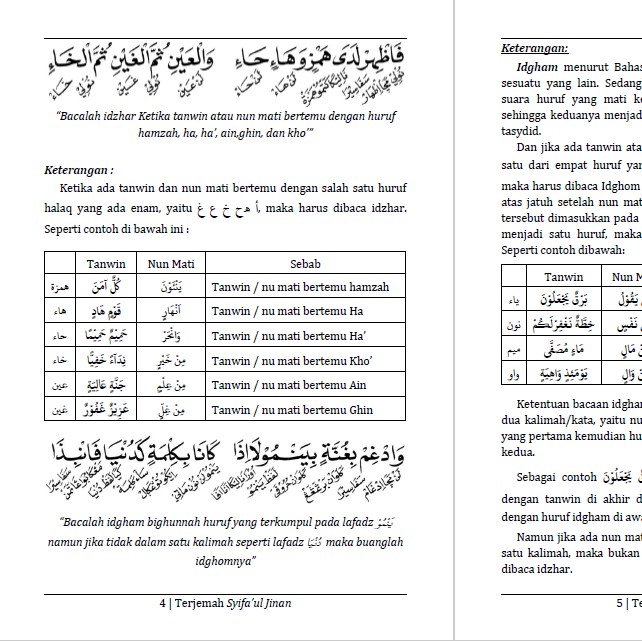 فَاظْهِرْ لَدَى هَمْزٍ وَهَاءٍ حَاءِ وَالْعَيْنِ ثُمَّ الْغَيْنِ ثُمَّ الْخَاءِ
“Bacalah izhar Ketika tanwin atau nun mati bertemu dengan huruf
hamzah, ha, ha’, ain,ghin, dan kho’”
Keterangan :
Ketika ada tanwin dan nun mati bertemu dengan salah satu huruf
halaq yang ada enam, yaitu أ هـ ح خ ع غ, maka harus dibaca idzhar.
Seperti contoh di bawah ini :
Tanwin Nun Mati Sebab
همزة كُلٌّ آمَنَ يَنْئَوْنَ Tanwin / nu mati bertemu hamzah
هاء قَوْمٍ هَادٍ اَنْهَارٍ Tanwin / nu mati bertemu Ha
حاء حَمِيْمٌ حَمِيْمًا وَانْحَرْ Tanwin / nu mati bertemu Ha’
خاء نِدَآءً خَفِيًّا مِنْ خَيْرٍ Tanwin / nu mati bertemu Kho’
عين جَنَّةٍ عَالِيَةٍ مِنْ عِلْمٍ Tanwin / nu mati bertemu Ain
غين عَزِيْزٌ غَفُوْرٌ مِنْ غِلٍّ Tanwin / nu mati bertemu Ghin
وَادْغِمْ بِغُنَّةٍ بِيَنْمُو لَا إِذَا كَانَا بِكِلْمَةٍ كَدُنْيَا فَانْبِذَا
“Bacalah idgham bighunnah huruf yang terkumpul pada lafadz يَنْمُوْ
namun jika tidak dalam satu kalimah seperti lafadz دُنْيَا maka buanglah
idghomnya”
4 | Terjemah Syifa’ul Jinan
Keterangan:
Idgham menurut Bahas
sesuatu yang lain. Sedang
suara huruf yang mati ke
sehingga keduanya menjad
tasydid.
Dan jika ada tanwin ata
satu dari empat huruf yan
maka harus dibaca Idghom
atas jatuh setelah nun mat
tersebut dimasukkan pada
menjadi satu huruf, maka
Seperti contoh dibawah:
Tanwin Nun M
ياء بَرْقٌ يَجْعَلُوْنَ يَقُوْلُ
نون حِطَّةٌ نَغْفِرْلَكُمْ نَفْسٍ
ميم مَاءٍ مُصَفًّى مَالٍ
واو يَوْمَئِذٍ وَاهِيَةٍ وَالٍ
Ketentuan bacaan idghar
dua kalimah/kata, yaitu nu
yang pertama kemudian hu
kedua.
Sebagai contoh يَجْعَلُوْنَ
dengan tanwin di akhir d
dengan huruf idgham di awa
Namun jika ada nun mat
satu kalimah, maka bukan
dibaca idzhar.
5 | Te